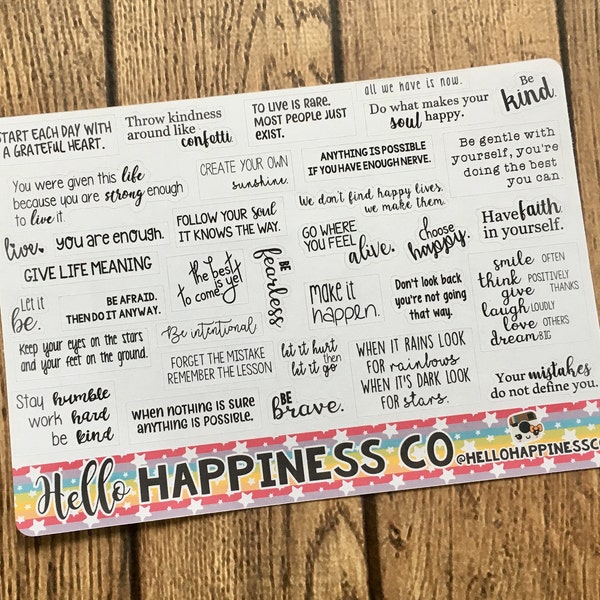 START EACH DAY WITH
A GRATEFUL HEART.
Throw kindness
around like
confetti.
TO LIVE IS RARE.
MOST PEOPLE JUST
EXIST.
all we have is now.
Do what makes your
soul happy.
Be
kind.
You were given this life
because you are strong enough
to live it.
CREATE YOUR OWN
sunshine.
ANYTHING IS POSSIBLE
IF YOU HAVE ENOUGH NERVE.
Be gentle with
yourself, you're
doing the best
you can.
We don't find happy lives,
we make them.
live.
you are enough.
FOLLOW YOUR soul
IT KNOWS THE WAY.
GO WHERE
YOU FEEL
alive.
choose
happy.
Have faith
in yourself.
GIVE LIFE MEANING
the best
is yet
to come
BE
fearless
make it
happen.
Don't look back
you're not going
that way.
smile OFTEN
think POSITIVELY
give THANKS
laugh LOUDLY
love OTHERS
dream BIG
Let it
be.
BE AFRAID.
THEN DO IT ANYWAY.
Be intentional
Keep your eyes on the stars
and your feet on the ground.
FORGET THE MISTAKE
REMEMBER THE LESSON
let it hurt
then
let it go
WHEN IT RAINS LOOK
FOR rainbows
WHEN IT'S DARK LOOK
FOR stars.
Your mistakes
do not define you.
Stay humble
work hard
be kind
WHEN NOTHING IS SURE
ANYTHING IS POSSIBLE.
BE
Brave.
Hello HAPPINESS CO
@HELLOHAPPINESSCO